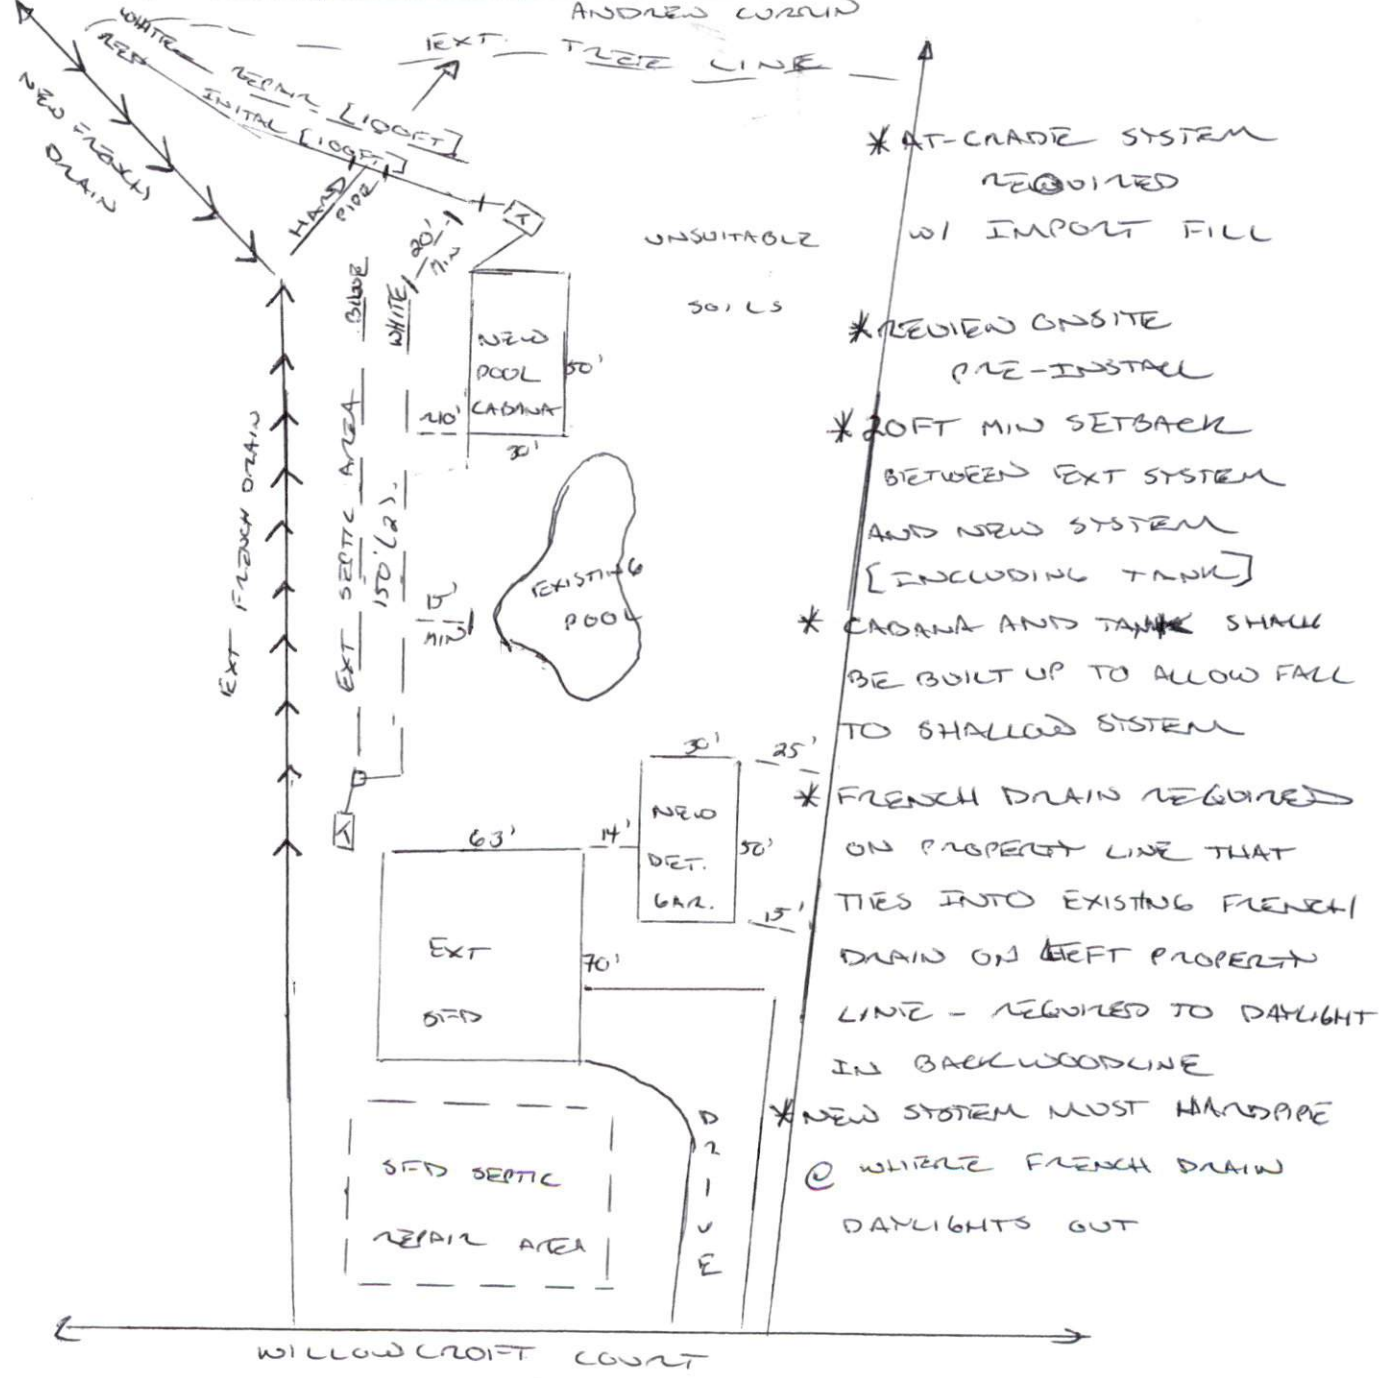 ANDREW CURRIN
EXT. TREE LINE
WHITE
RED
REPAIR [100FT]
INITAL [100FT]
NEW FRENCH
DRAIN
HARD
PIPE
20'
MIN
T
BLUE
WHITE
UNSUITABLE
SOILS
NEW
POOL
CABANA
50'
30'
210'
EXT FRENCH DRAIN
EXT SEPTIC AREA
150'(2)
15'
MIN
EXISTING
POOL
T
63'
14'
30'
25'
NEW
DET.
GAR.
50'
15'
EXT
SFD
70'
SFD SEPTIC
REPAIR AREA
DRIVE
WILLOWCROFT COURT
* AT-GRADE SYSTEM
REQUIRED
W/ IMPORT FILL
* REVIEW ONSITE
PRE-INSTALL
* 20FT MIN SETBACK
BETWEEN EXT SYSTEM
AND NEW SYSTEM
[INCLUDING TANK]
* CABANA AND TANK SHALL
BE BUILT UP TO ALLOW FALL
TO SHALLOW SYSTEM
* FRENCH DRAIN REQUIRED
ON PROPERTY LINE THAT
TIES INTO EXISTING FRENCH
DRAIN ON LEFT PROPERTY
LINE - REQUIRED TO DAYLIGHT
IN BACK WOODLINE
* NEW SYSTEM MUST HARDPIPE
@ WHERE FRENCH DRAIN
DAYLIGHTS OUT